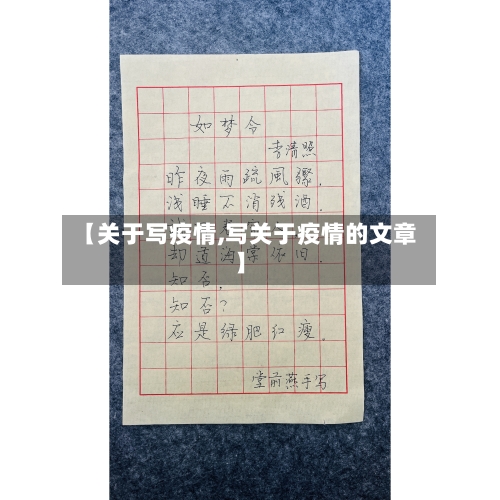 如梦令
李清照
昨夜雨疏風骤,
浅睡不消残酒.
【关于写疫情,写关于疫情的文章
】
却道海棠依旧.
知否,
知否?
应是绿肥红瘦。
堂前燕手写